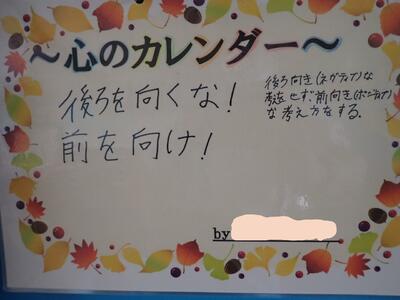 ～心のカレンダー～
後ろを向くな！
前を向け！
後ろ向き(ネガティブ)な
考えをせず、前向き(ポジティブ)
な考え方をする。
by